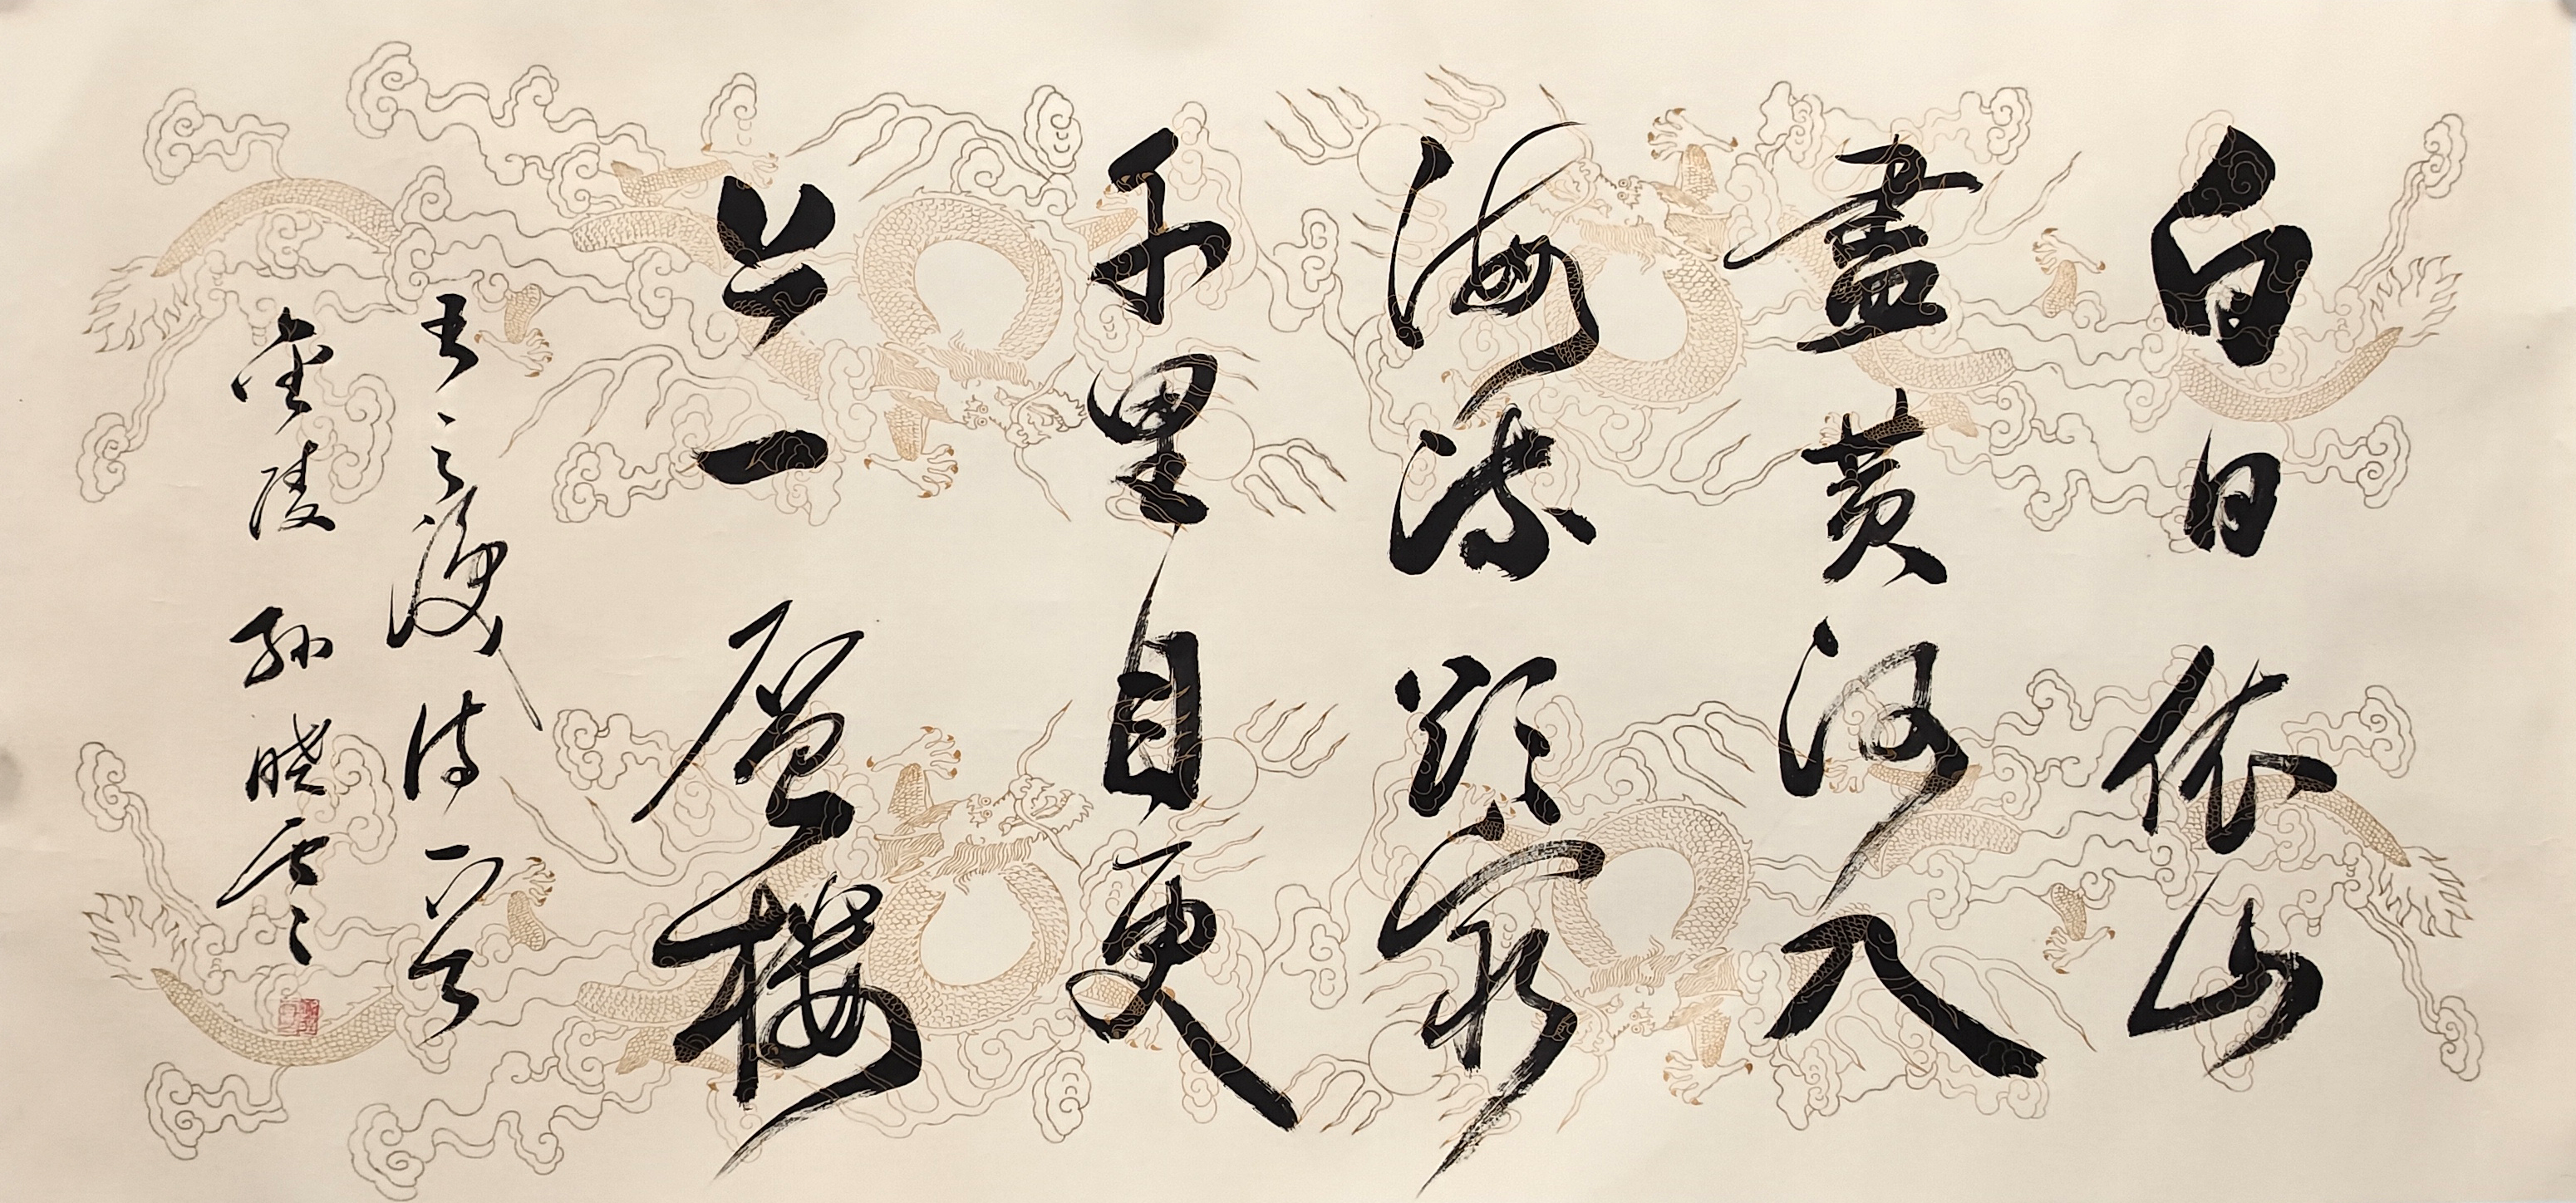 白日依山
盡黄河入
海流欲窮
千里目更
上一層樓
王之渙詩一首
金陵孫曉雲